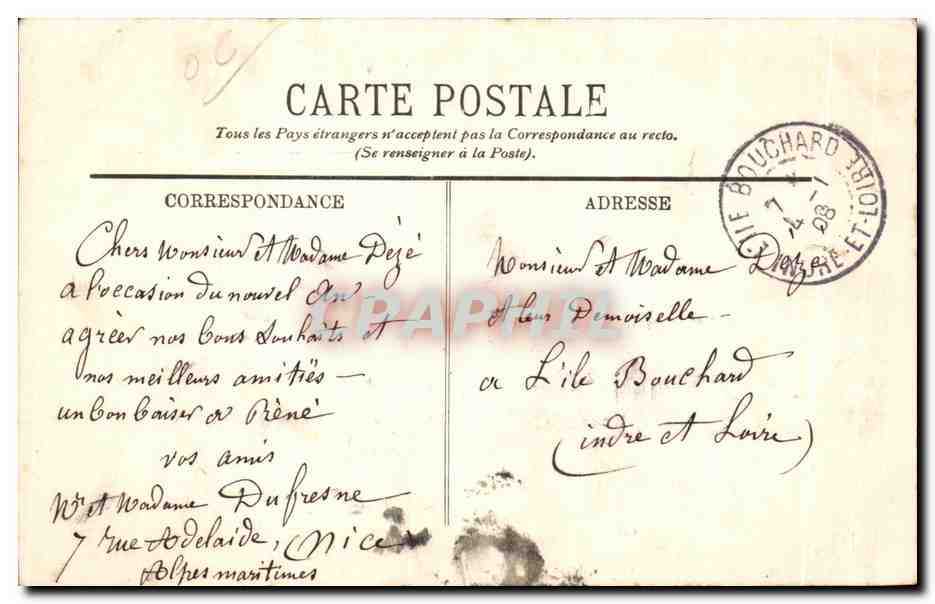 CARTE POSTALE
Tous les Pays étrangers n'acceptent pas la Correspondance au recto.
(Se renseigner à la Poste).
CORRESPONDANCE
Chers Monsieur et Madame Dézé
a l'occasion du nouvel An
agréer nos bons Souhaits et
nos meilleurs amitiés —
un bon baiser a Réné
vos amis
Mr et Madame Dufresne
7 rue Adelaide, (Nice)
Alpes maritimes
ADRESSE
Monsieur et Madame Deze
et leur Demoiselle —
a L'ile Bouchard
(indre et Loire)
BOUCHARD
INDRE-ET-LOIRE
08
CPAPHIL